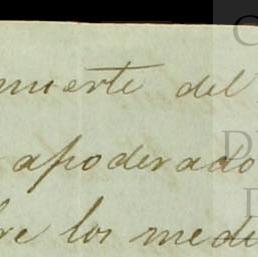 muerte del
apoderado
re los medi